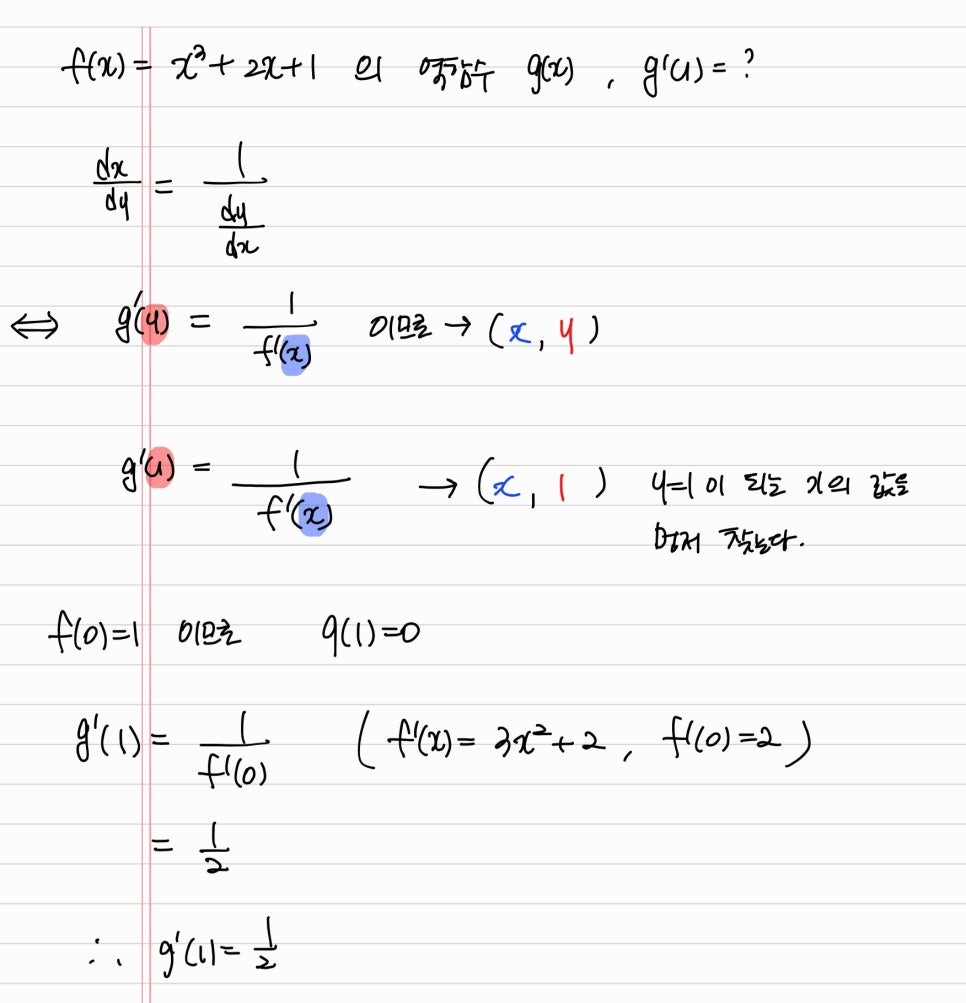 f(x) = x³ + 2x + 1 의 역함수 g(x) , g'(1) = ?
dx/dy = 1/(dy/dx)
⇔ g'(y) = 1/f'(x) 이므로 → (x, y)
g'(1) = 1/f'(x) → (x, 1) y=1 이 되는 x의 값을
먼저 찾는다.
f(0)=1 이므로 g(1)=0
g'(1) = 1/f'(0) ( f'(x) = 3x² + 2 , f'(0) = 2 )
= 1/2
∴ g'(1) = 1/2